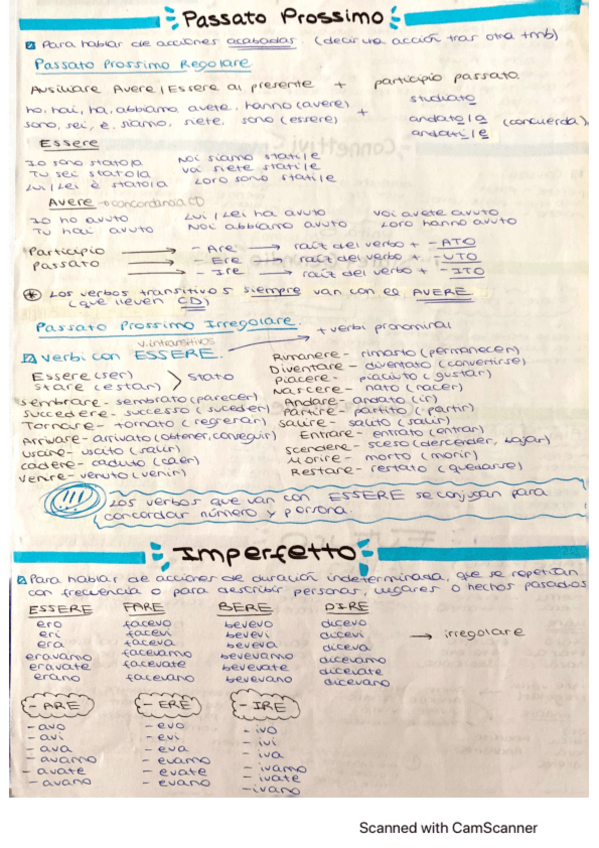 Passato Prossimo
Para hablar de acciones acabadas. (decir una acción tras otra tmb)
Passato Prossimo Regolare
Ausiliare Avere/Essere al presente + participio passato.
ho, hai, ha, abbiamo, avete, hanno (avere) +
sono, sei, è, siamo, siete, sono (essere)
studiato
andato/a (concuerda)
andati/e
Essere
Io sono stato/a Noi siamo stati/e
Tu sei stato/a Voi siete stati/e
Lui/Lei è stato/a Loro sono stati/e
Avere → concordancia CD
Io ho avuto Lui/Lei ha avuto Voi avete avuto
Tu hai avuto Noi abbiamo avuto Loro hanno avuto
Participio passato
- Are → raíz del verbo + -ATO
- Ere → raíz del verbo + -UTO
- Ire → raíz del verbo + -ITO
Los verbos transitivos siempre van con el AVERE
(que lleven CD)
Passato Prossimo Irregolare.
v. intransitivos
+ verbi pronominal
Verbi con ESSERE.
Essere (ser)
Stare (estar) > stato
Sembrare - sembrato (parecer)
Succedere - successo (suceder)
Tornare - tornato (regresar)
Arrivare - arrivato (obtener, conseguir)
Uscire - uscito (salir)
Cadere - caduto (caer)
Venire - venuto (venir)
Rimanere - rimasto (permanecer)
Diventare - diventato (convertirse)
Piacere - piaciuto (gustar)
Nascere - nato (nacer)
Andare - andato (ir)
Partire - partito (partir)
Salire - salito (salir)
Entrare - entrato (entrar)
Scendere - sceso (descender, bajar)
Morire - morto (morir)
Restare - restato (quedarse)
!!!
Los verbos que van con ESSERE se conjugan para
concordar número y persona.
Imperfetto
Para hablar de acciones de duración indeterminada, que se repetían
con frecuencia o para describir personas, lugares o hechos pasados
ESSERE FARE BERE DIRE
ero facevo bevevo dicevo
eri facevi bevevi dicevi
era faceva beveva diceva
eravamo facevamo bevevamo dicevamo
eravate facevate bevevate dicevate
erano facevano bevevano dicevano
→ irregolare
- ARE - ERE - IRE
- avo - evo - ivo
- avi - evi - ivi
- ava - eva - iva
- avamo - evamo - ivamo
- avate - evate - ivate
- avano - evano - ivano
Scanned with CamScanner